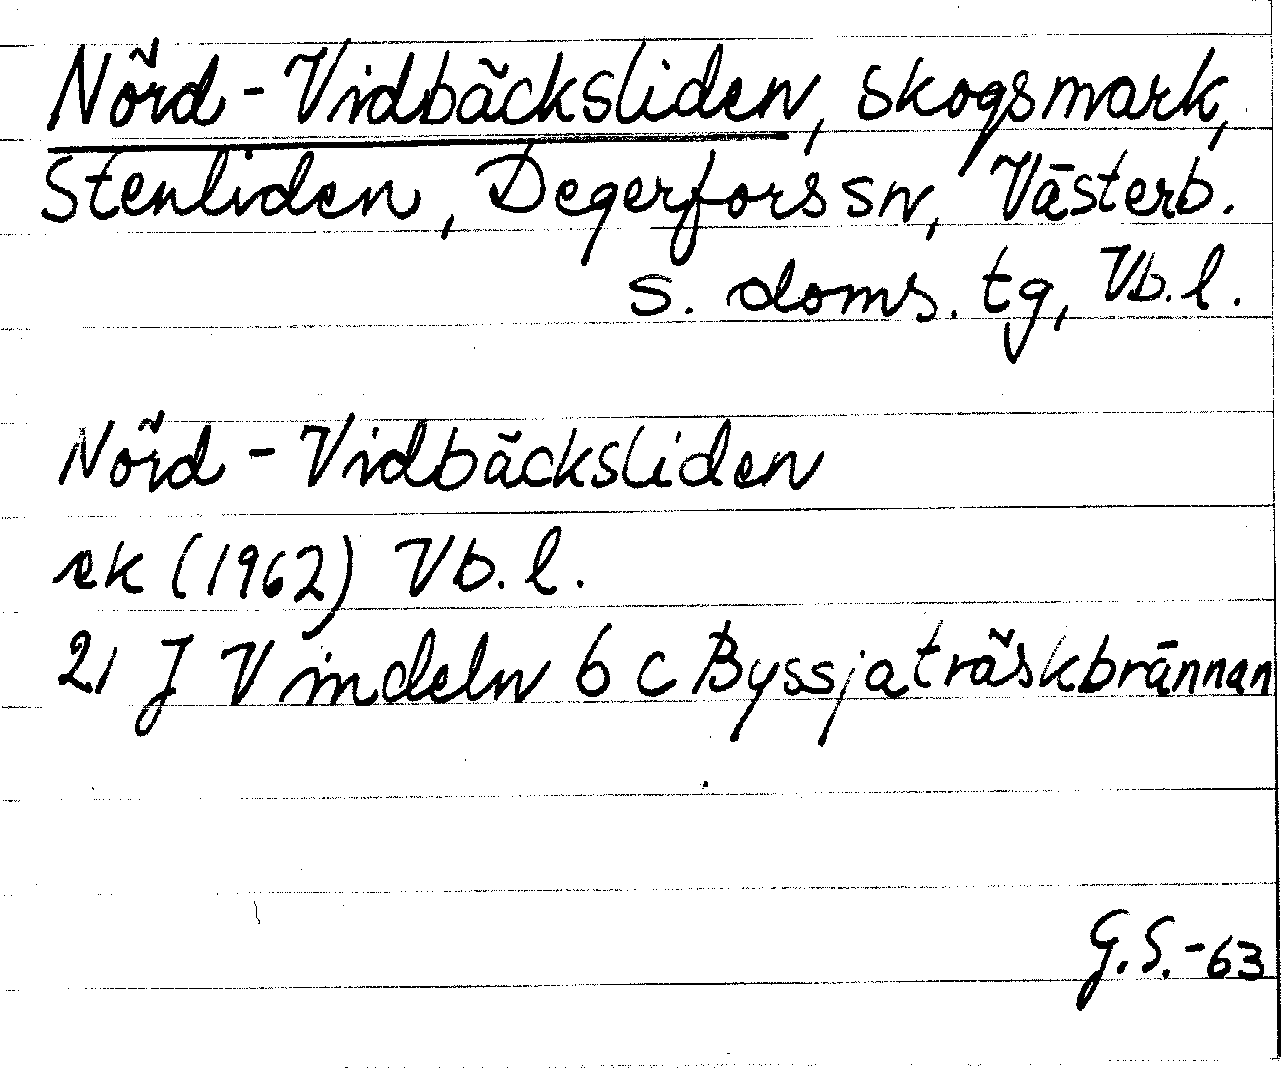 Nörd-Vidbäcksliden, skogsmark,
Stenliden, Degerfors sn, Västerb.
s. doms. tg, Vb.l.
Nörd-Vidbäcksliden
ek (1962) Vb.l.
21 J Vindeln 6 c Byssjaträskbrännan
G.S.-63